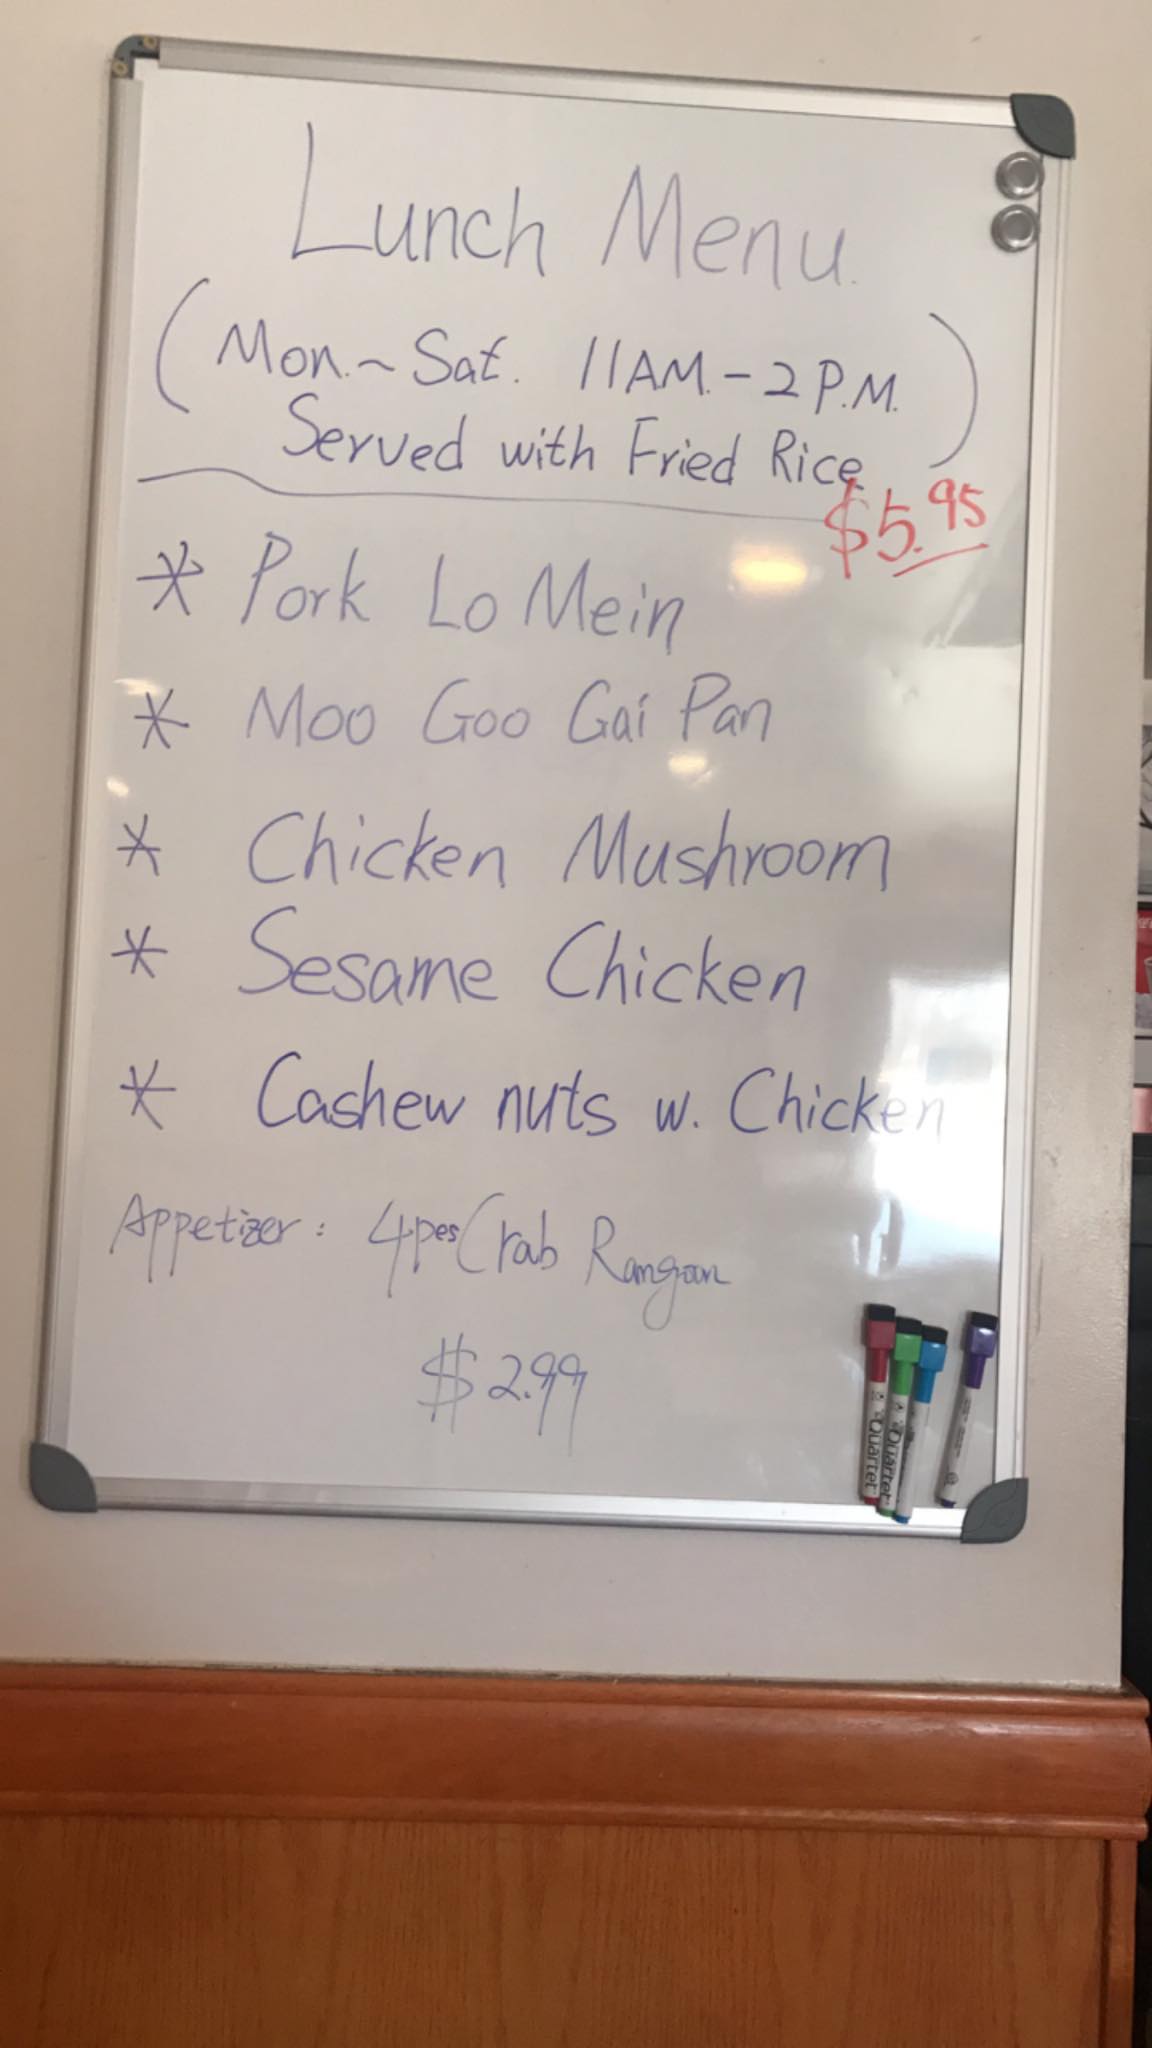 Lunch Menu.
(Mon.~Sat. 11AM.-2P.M.
Served with Fried Rice)
$5.95
* Pork Lo Mein
* Moo Goo Gai Pan
* Chicken Mushroom
* Sesame Chicken
* Cashew nuts w. Chicken
Appetizer: 4pcs Crab Rangoon
$2.99
Quartet
Quartet